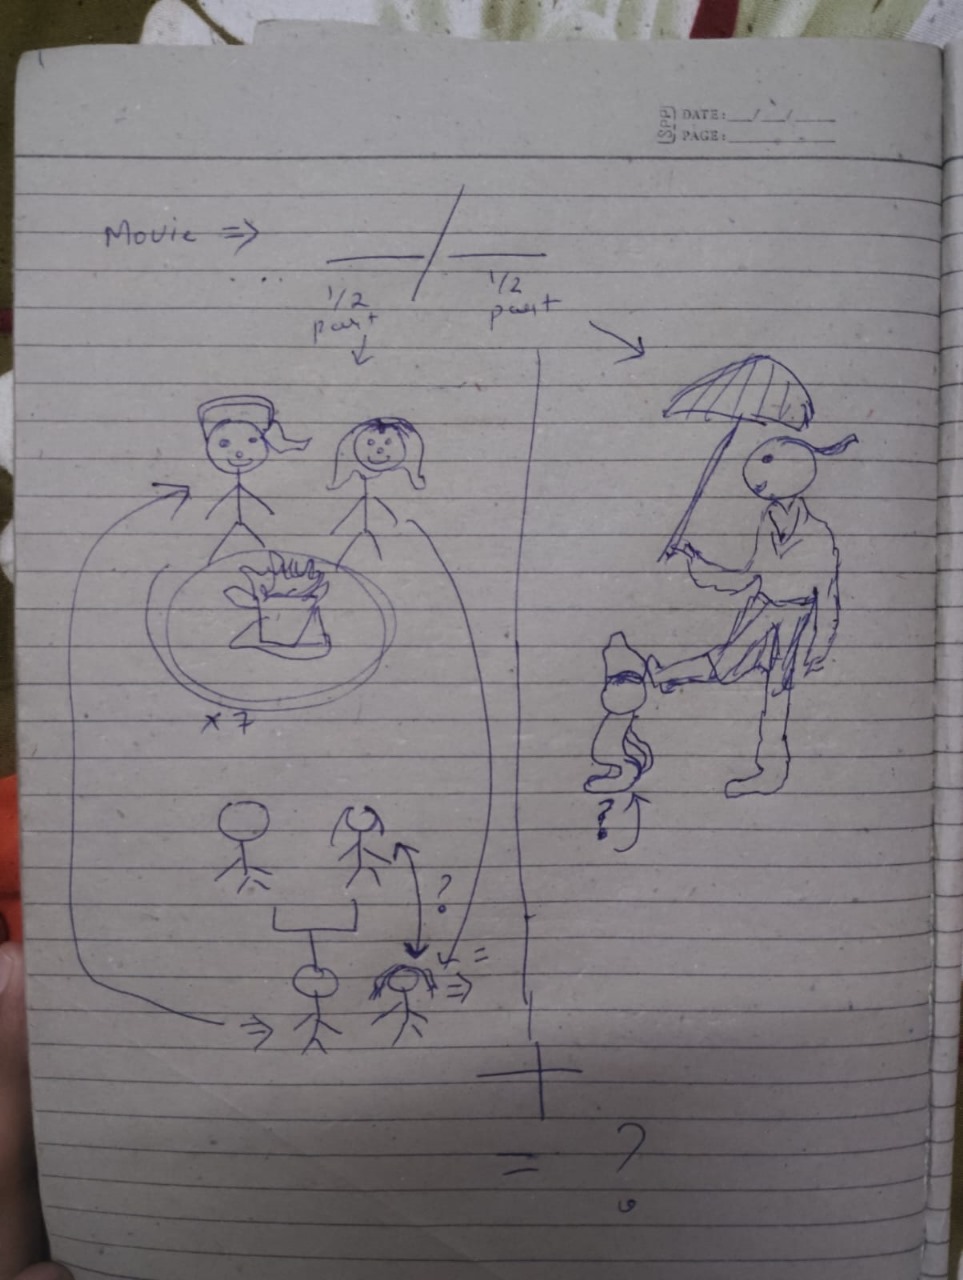 SPP DATE: __/__/____
PAGE: ________
Movie ⇒ ____ / ____
1/2 part
1/2 part
x 7
?
?
=
+
= ?